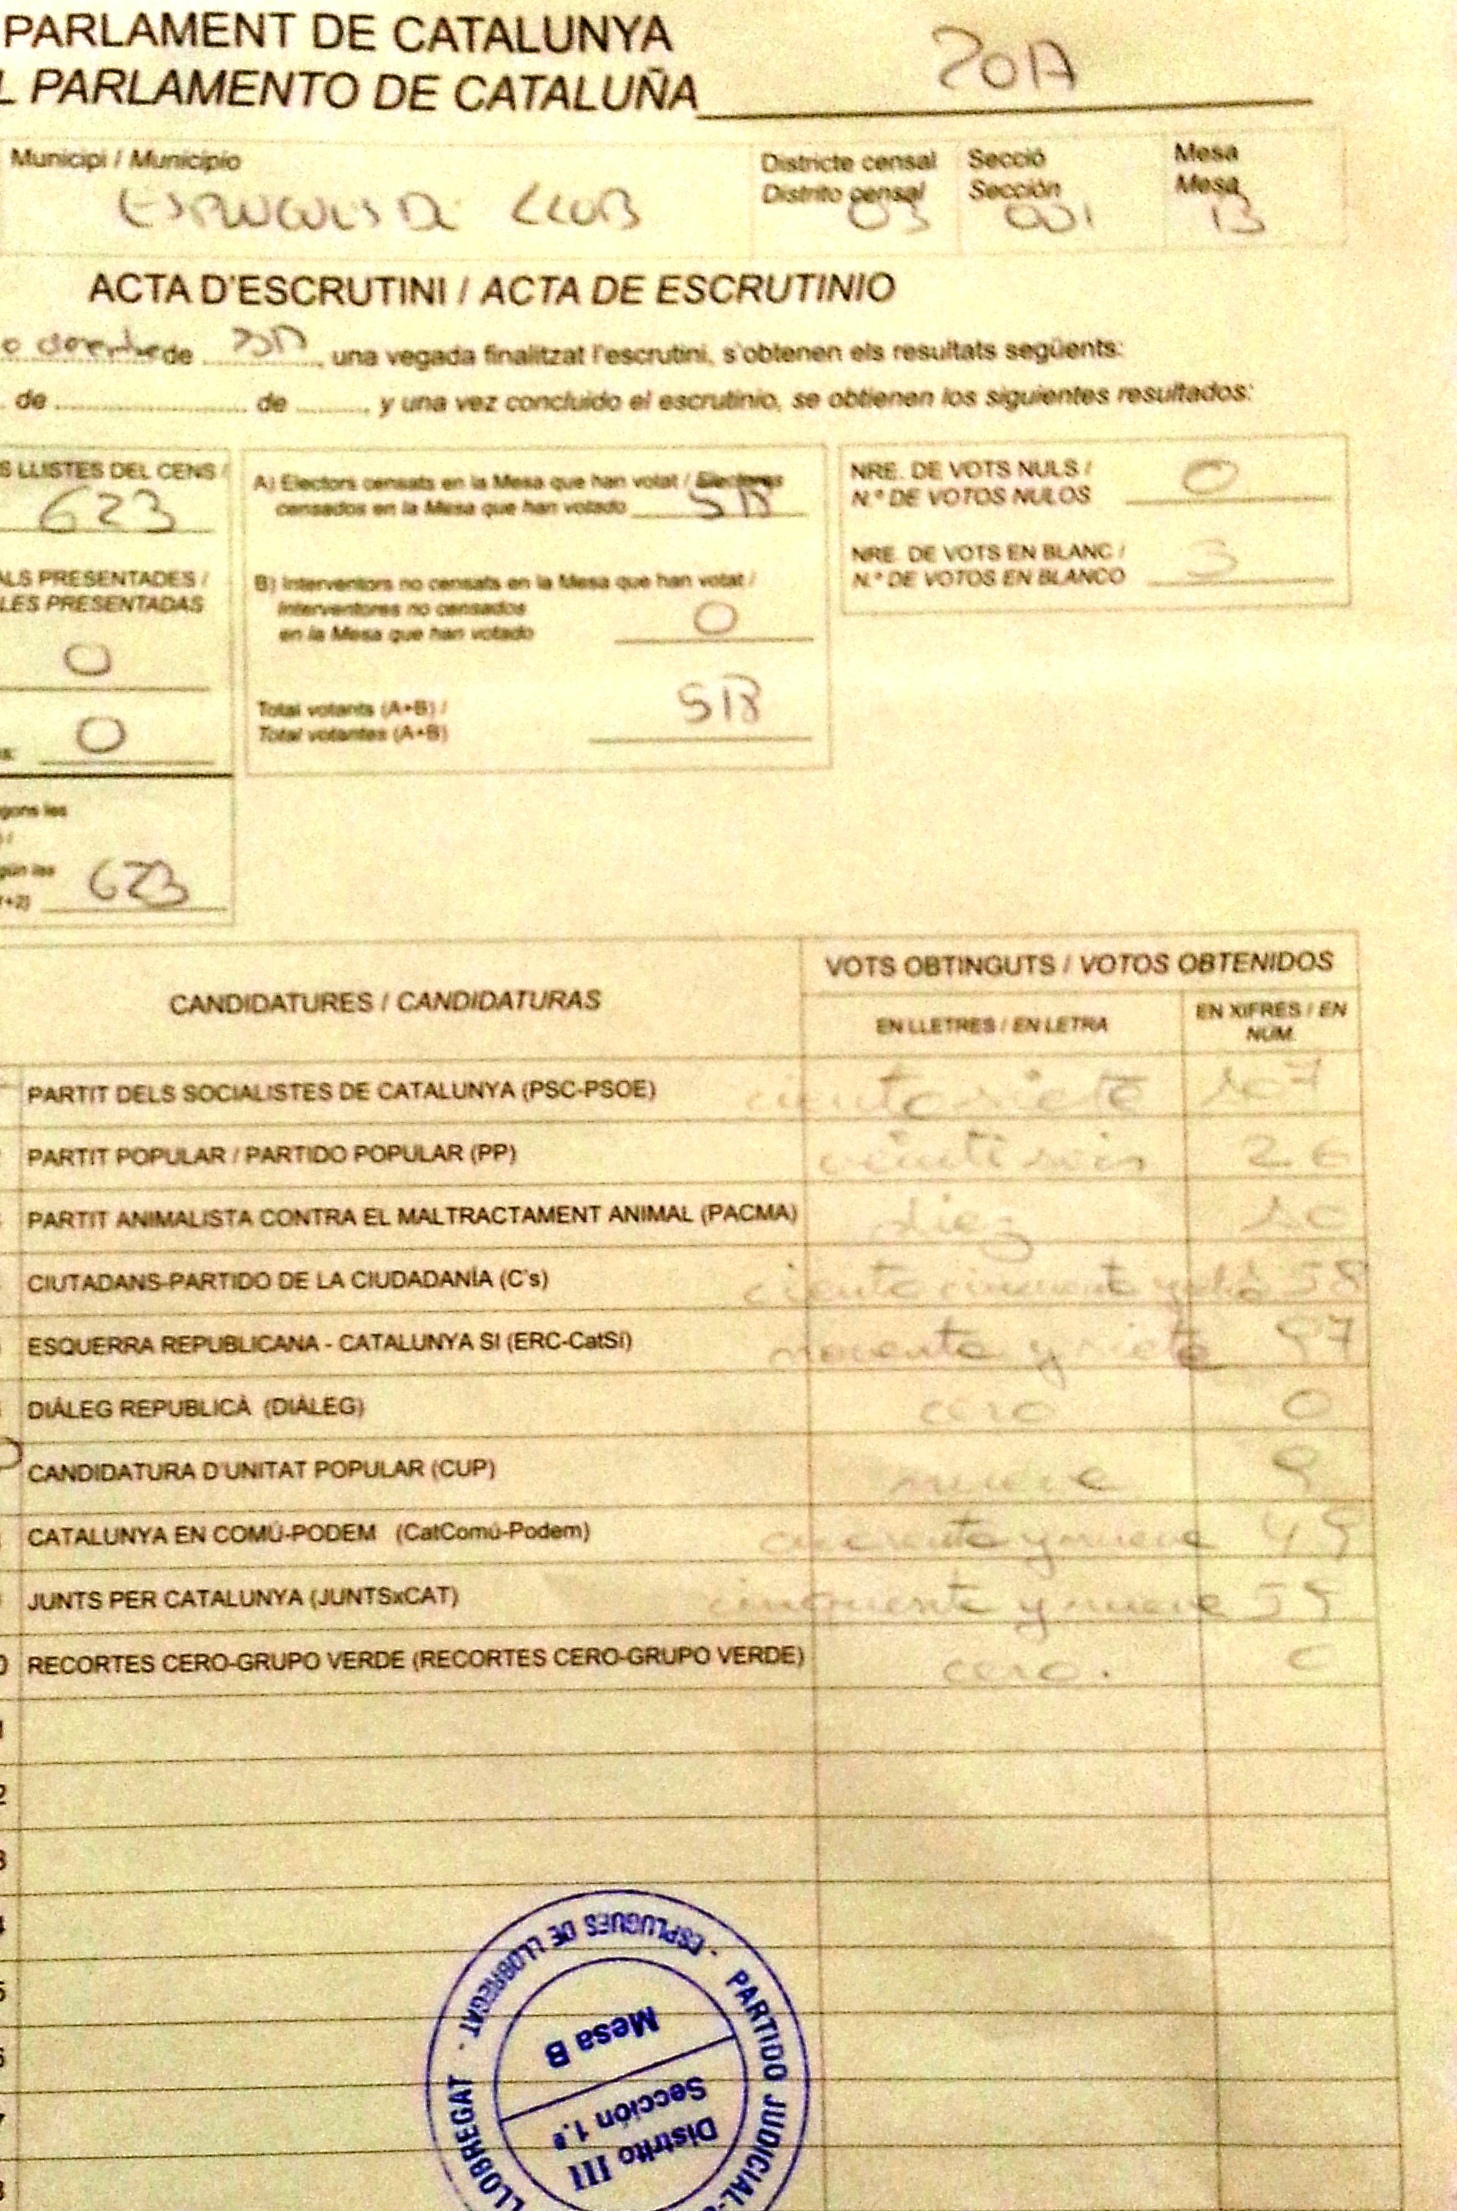 PARLAMENT DE CATALUNYA
L PARLAMENTO DE CATALUÑA 2017
Municipi / Municipio
Districte censal
Distrito censal
Secció
Sección
Mesa
Mesa
ESPLUGUES DE LLOB 03 001 B
ACTA D'ESCRUTINI / ACTA DE ESCRUTINIO
de 2017, una vegada finalitzat l'escrutini, s'obtenen els resultats següents:
. de ........................ de ........., y una vez concluido el escrutinio, se obtienen los siguientes resultados:
S LLISTES DEL CENS /
623
ALS PRESENTADES /
LES PRESENTADAS
0
s: 0
gons les
) /
gún las
1+2) 623
A) Electors censats en la Mesa que han votat / Electores
censados en la Mesa que han votado 518
B) Interventors no censats en la Mesa que han votat /
Interventores no censados
en la Mesa que han votado 0
Total votants (A+B) /
Total votantes (A+B) 518
NRE. DE VOTS NULS /
N.º DE VOTOS NULOS 0
NRE. DE VOTS EN BLANC /
N.º DE VOTOS EN BLANCO 3
CANDIDATURES / CANDIDATURAS
VOTS OBTINGUTS / VOTOS OBTENIDOS
EN LLETRES / EN LETRA
EN XIFRES / EN
NÚM.
PARTIT DELS SOCIALISTES DE CATALUNYA (PSC-PSOE) ciento siete 107
PARTIT POPULAR / PARTIDO POPULAR (PP) veintiseis 26
PARTIT ANIMALISTA CONTRA EL MALTRACTAMENT ANIMAL (PACMA) diez 10
CIUTADANS-PARTIDO DE LA CIUDADANÍA (C's) ciento cincuenta y ocho 158
ESQUERRA REPUBLICANA - CATALUNYA SI (ERC-CatSí) noventa y siete 97
DIÀLEG REPUBLICÀ (DIÀLEG) cero 0
CANDIDATURA D'UNITAT POPULAR (CUP) nueve 9
CATALUNYA EN COMÚ-PODEM (CatComú-Podem) cuarenta y nueve 49
JUNTS PER CATALUNYA (JUNTSxCAT) cincuenta y nueve 59
0 RECORTES CERO-GRUPO VERDE (RECORTES CERO-GRUPO VERDE) cero. 0
1
2
3
4
5
6
7
8
PARTIDO JUDICIAL
LLOBREGAT - ESPLUGUES DE LLOBREGAT -
Distrito III
Sección 1.ª
Mesa B